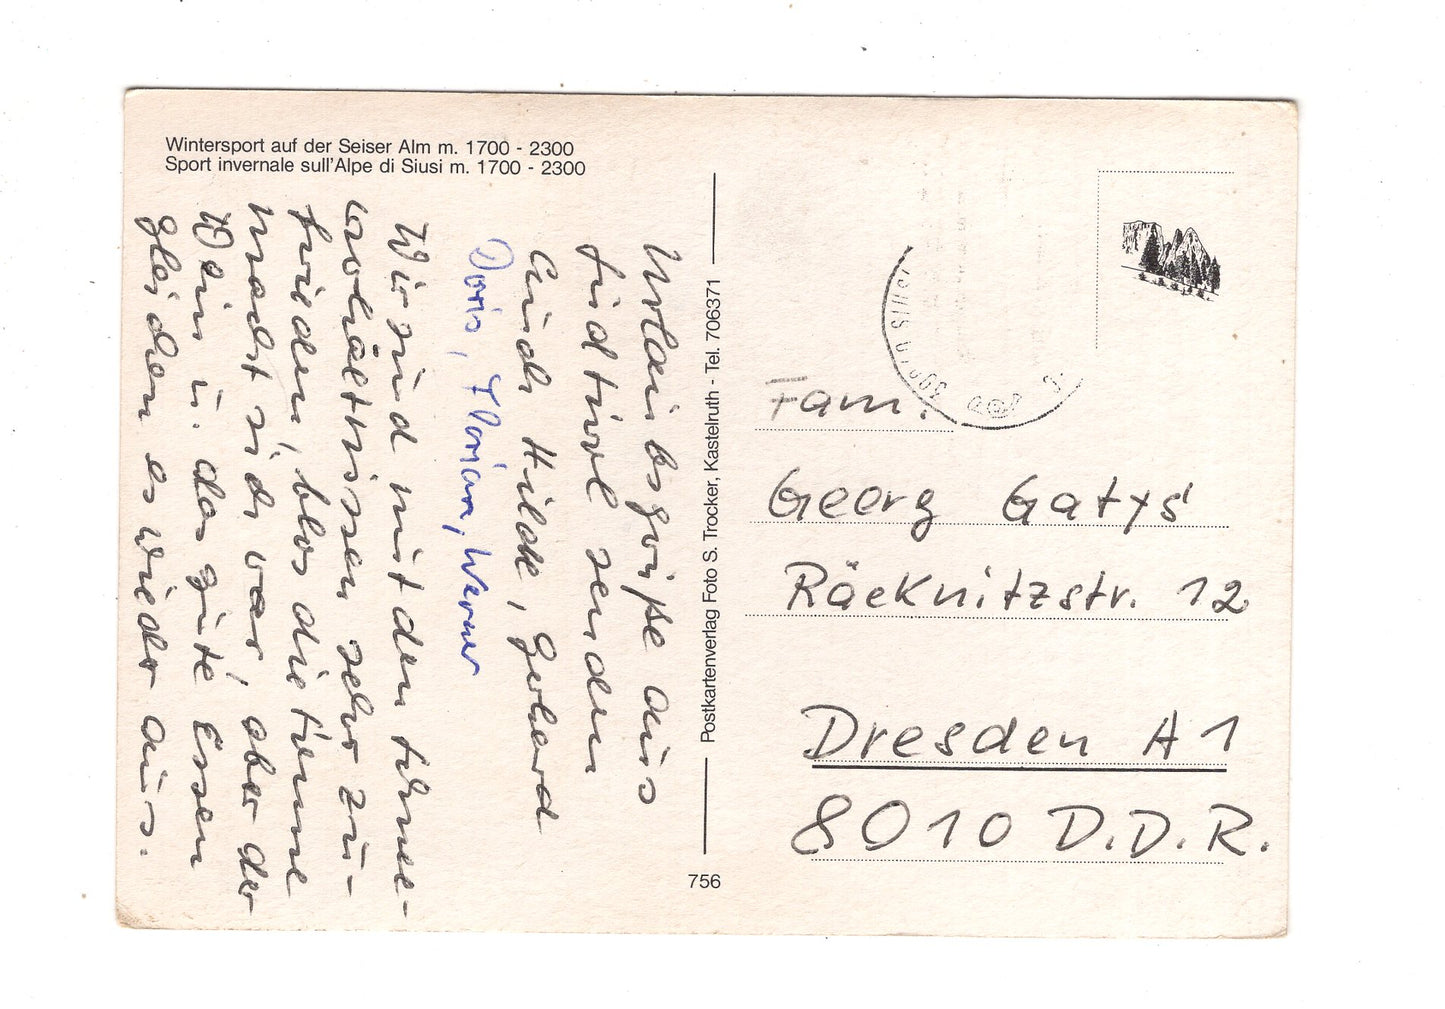 Wintersport auf der Seiser Alm m. 1700 - 2300
Sport invernale sull'Alpe di Siusi m. 1700 - 2300
Urlaubsgrüße aus
Südtirol senden
Euch Hilde, Gerhard
Doris, Florian, Werner
Wir sind mit den Schnee-
verhältnissen sehr zu-
frieden, blos die Sonne
macht sich rar, aber der
Wein u. das gute Essen
gleichen es wieder aus.
Postkartenverlag Foto S. Trocker, Kastelruth - Tel. 706371
756
Fam.
Georg Gatys
Räcknitzstr. 12
Dresden A1
8010 D.D.R.